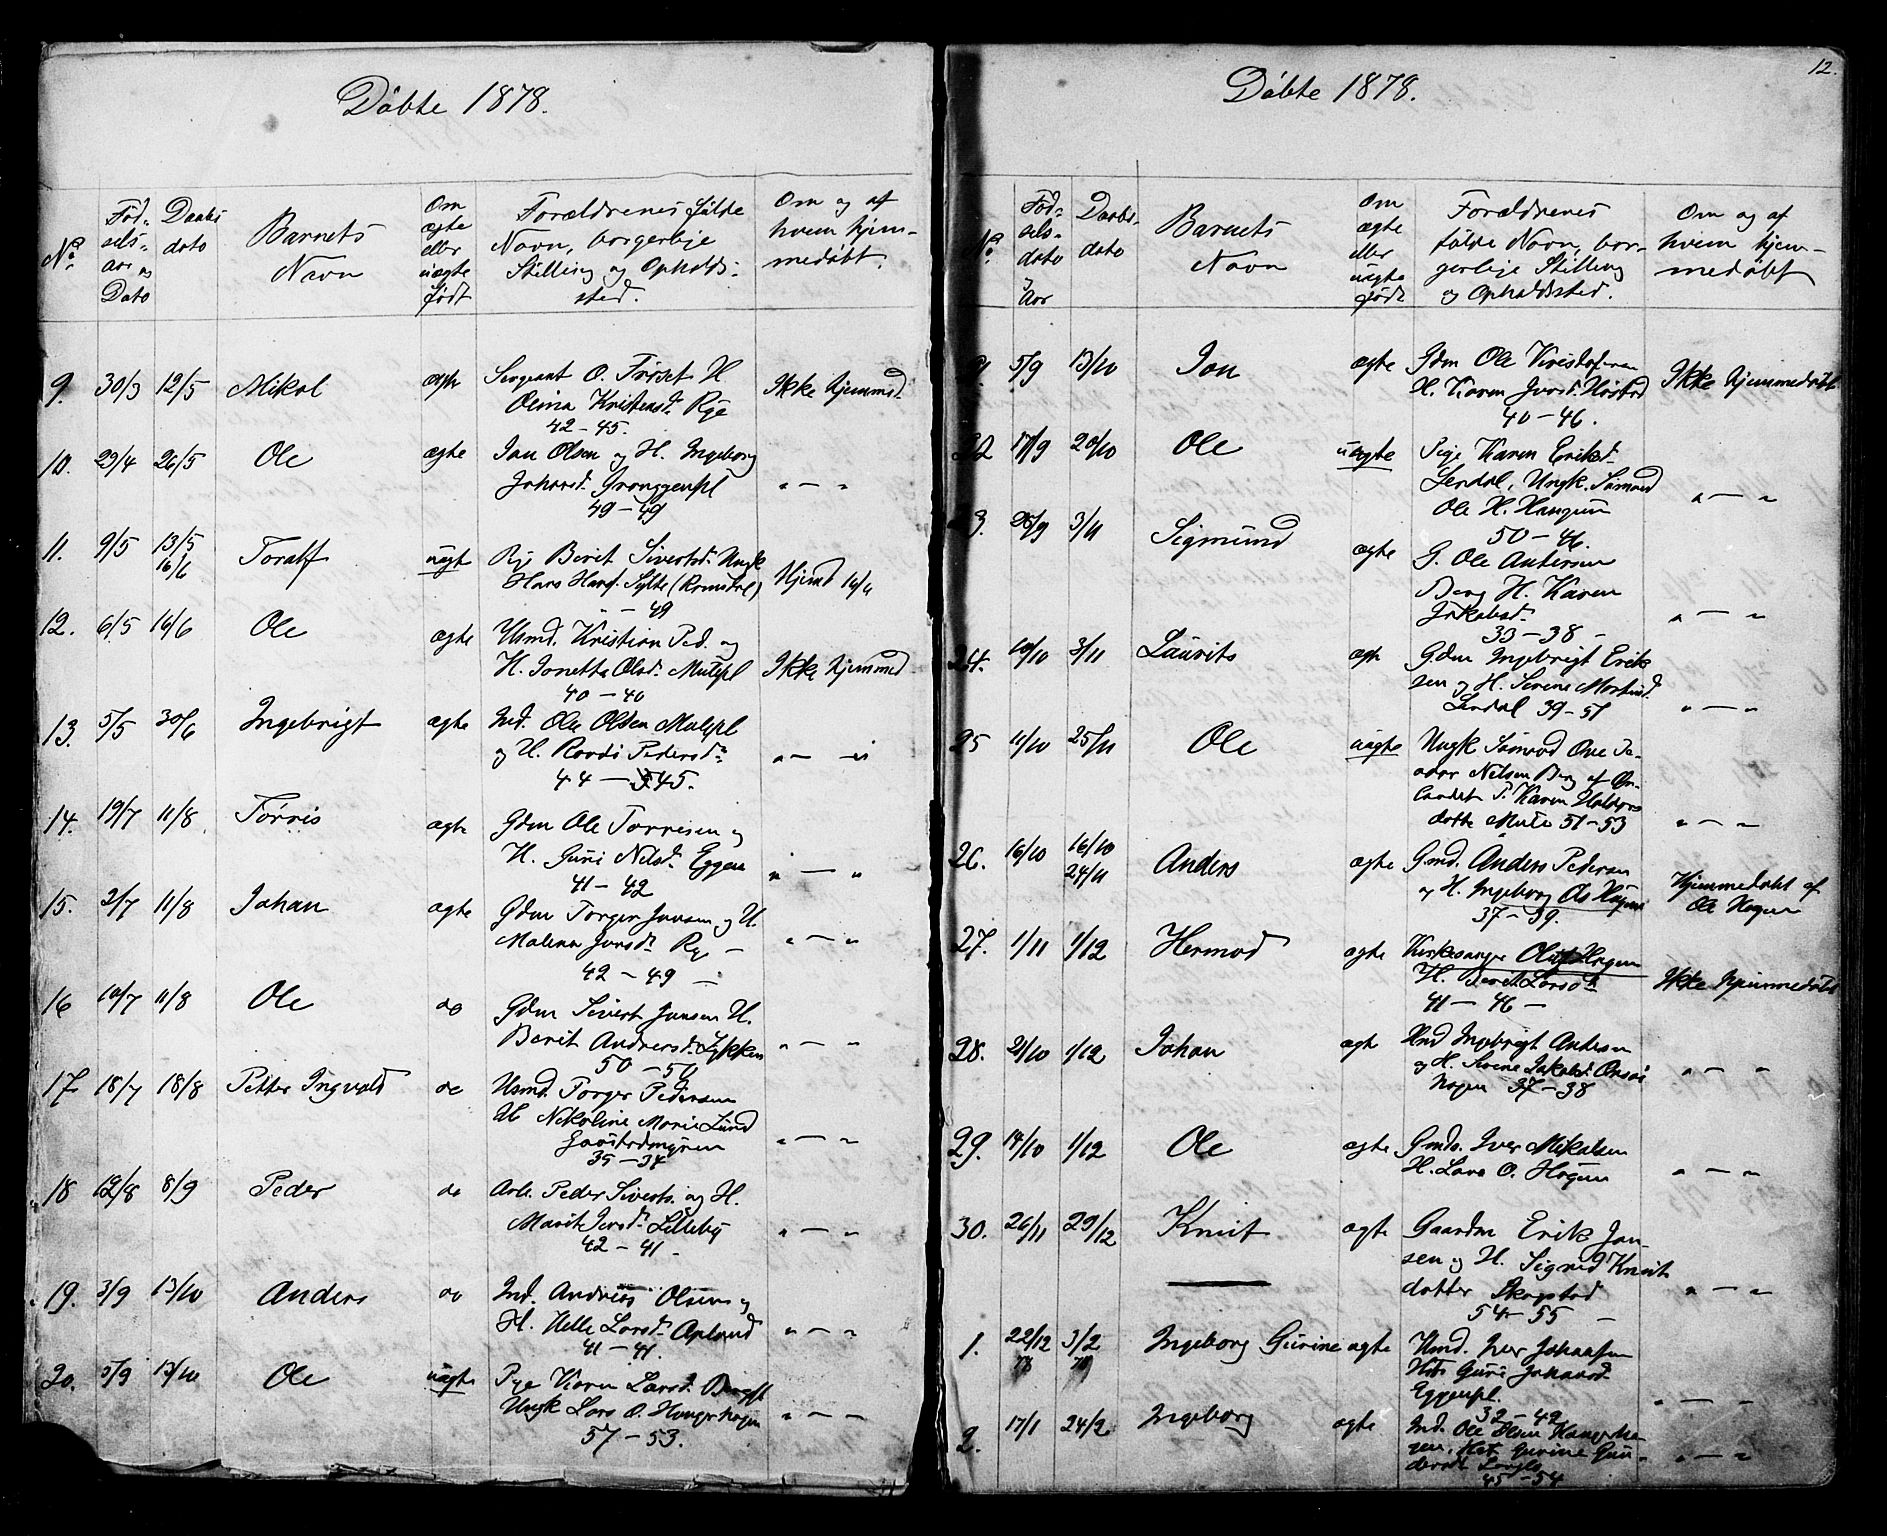 Döbte 1878.
No.
Föd-
sels-
aar og
Dato
Daabs
dato
Barnets
Navn
Om
ægte
eller
uægte
födt
Forældrenes fulde
Navn, borgerlige
Stilling og Opholds-
sted.
Om og af
hvem hjem-
medöbt.
9. 30/3 12/5 Mikal ægte Sergeant O. Fröset H
Olina Kristensd. Rye Ikke hjemmed.
42 - 45.
10. 29/4 26/5 Ole ægte Jan Olsen og H. Ingeborg
Johansd. " — "
49 - 49
11. 9/5 13/5 Toralf uægte Berit Sivertsd. Ungk
16/6 Hans Hans. Sylte (Romsdal) Hjemd
" - 49
12. 6/5 16/6 Ole ægte Husmd. Kristian Ped. og
H. Olsd. Ikke hjemmed
40 - 40
13. 5/5 30/6 Ingebrigt ægte Ind. Ole Olsen
og H. Pedersd. " — "
44 - 45.
14. 19/7 11/8 Törris ægte Gdm Ole Torrisen og
H. Guri Nelsd. Eggen " — "
41 - 42
15. 2/7 11/8 Johan ægte Gdm Torger Jansen og H.
Malena Rye - " — "
42 - 49 -
16 10/7 11/8 Ole do Gdm Sivert Jansen H.
Berit Andersd. Lykken " — "
50 - 50
17. 18/7 18/8 Petter Ingvald do Husmd. Torger Pedersen
H. Nikoline Marie Lund
" — "
35 - 34
18 12/8 8/9 Peder do Arb. Peder Siverts. og H.
Marit Lilleby " — "
42 - 41 -
19. 3/9 13/10 Anders do Ind. Andreas Olsen og
H. Helle Larsd. Aplund " — "
41 - 41.
20. 5/9 13/10 Ole uægte Pige Karen Larsd.
Ungk Lars O. Haugerhagen " — "
57 - 53.
12.
Döbte 1878.
No.
Föd-
sels-
dato
og
Aar
Daabs-
dato
Barnets
Navn
Om
ægte
eller
uægte
födt
Forældrenes
fulde Navn, bor-
gerlige Stilling
og Opholdssted.
Om og af
hvem hjem-
medöbt
21. 5/9 13/10 Jan ægte Gdm Ole Kristofersen
H. Karen Ikke hjemmedöbt
40 - 46.
22 17/9 20/10 Ole uægte Pige Karen Eriksd.
Lerdal, Ungk. Sömand " — "
Ole H. Haugen
50 - 46.
23. 3/11 Sigmund ægte G. Ole Andersen
Berg H. Karen
Jakobsd. " — "
33 - 38 -
24. 10/10 3/11 Laurits ægte Gdm Ingebrigt Erik
sen og H. Serine
Lerdal 39 - 51 " — "
25 11/10 25/11 Ole uægte Ungk Sömand Ove
Nelsen Berg af
P. Karen
datter 51 - 53 " — "
26. 16/10 16/10 Anders ægte Gmd. Anders Pedersen
24/11 og H. Ingeborg Ols Hagen Hjemmedöbt af
37 - 39. Ole Hagen
27. 1/11 1/12 Hermod ægte Kirkesanger Oluf Hagen
H. Berit Larsd. Ikke hjemmedöbt
41 - 46 -
28. 21/10 1/12 Johan ægte Hmd Ingebrigt Anders
og H. Serine Jakobsd.
hagen 37 - 38 " — "
29. 14/10 1/12 Ole ægte Gmds. Iver Mikalsen
H. Lava O. Hagen " — "
30. 26/11 29/12 Knut ægte Gaardm Erik Jan
sen og H. Sigrid Knut
datter Skogstad " — "
54 - 55 -
1. 22/12 3/2 Ingeborg Gurine ægte Hmd. Iver Johansen
78 Guri Johansd.
" — "
32 - 42
2. 17/1 24/2 Ingeborg ægte Ind. Ole Olsen
Gurine Gun-
" — "
45 - 54